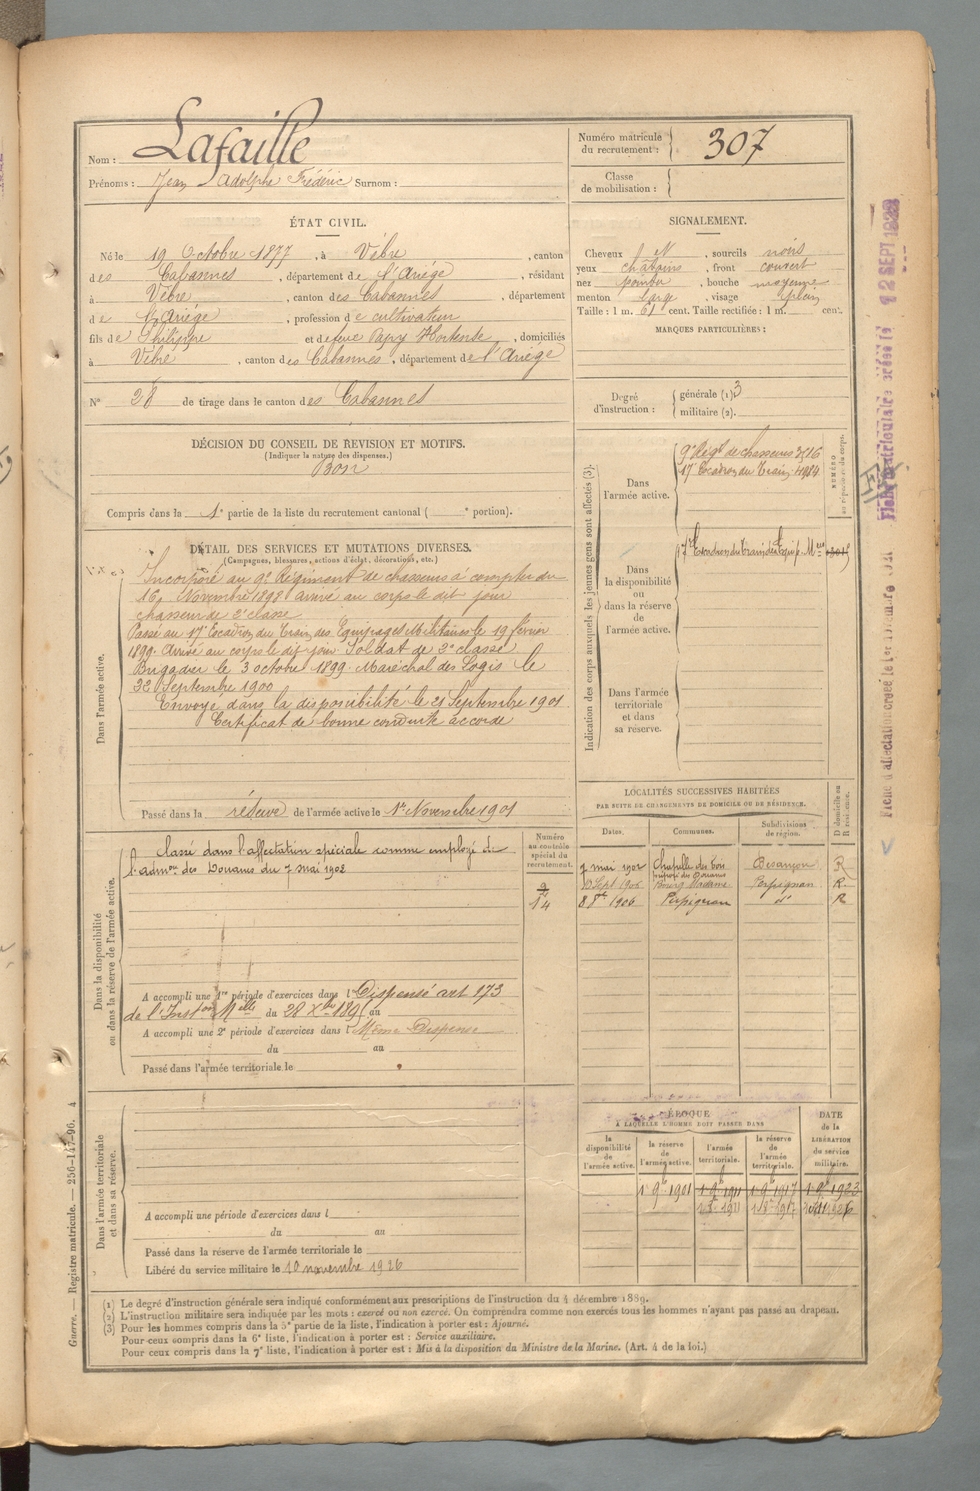 Nom : Lafaille
Prénoms : Jean Adolphe Frédéric Surnom :
Numéro matricule du recrutement : 307
Classe de mobilisation :
ÉTAT CIVIL.
Né le 19 Octobre 1877, à Vèbre, canton
des Cabannes, département de l'Ariège, résidant
à Vèbre, canton des Cabannes, département
de l'Ariège, profession de cultivateur
fils de Philippe et de feue Papy Hortense, domiciliés
à Vèbre, canton des Cabannes, département de l'Ariège
N° 28 de tirage dans le canton des Cabannes
SIGNALEMENT.
Cheveux N, sourcils noirs
yeux châtains, front couvert
nez pointu, bouche moyenne
menton large, visage plein
Taille : 1 m. 61 cent. Taille rectifiée : 1 m. cent.
MARQUES PARTICULIÈRES :
Degré d'instruction : générale (1) 3
militaire (2).
DÉCISION DU CONSEIL DE REVISION ET MOTIFS.
(Indiquer la nature des dispenses.)
Bon
Compris dans la 1e partie de la liste du recrutement cantonal ( e portion).
DÉTAIL DES SERVICES ET MUTATIONS DIVERSES.
(Campagnes, blessures, actions d'éclat, décorations, etc.)
Dans l'armée active.
Incorporé au 9e Régiment de chasseurs à compter du
16 Novembre 1898 arrivé au corps le dit jour
chasseur de 2e classe
Passé au 17e Escadron du Train des Equipages Militaires le 19 février
1899. Arrivé au corps le dit jour. Soldat de 2e classe
Brigadier le 3 octobre 1899. Maréchal des Logis le
22 Septembre 1900
Envoyé dans la disponibilité le 21 Septembre 1901
Certificat de bonne conduite accordé
Passé dans la réserve de l'armée active le 1er Novembre 1901
Indication des corps auxquels les jeunes gens sont affectés (3).
NUMÉRO au répertoire du corps.
Dans l'armée active.
9e Régt de chasseurs 3516
17e Escadron du Train 4984
Dans la disponibilité ou dans la réserve de l'armée active.
17e Escadron du train des Equip. Mres
Dans l'armée territoriale et dans sa réserve.
LOCALITÉS SUCCESSIVES HABITÉES
PAR SUITE DE CHANGEMENTS DE DOMICILE OU DE RÉSIDENCE.
Dates. Communes. Subdivisions de région. D domicile ou R résidence.
7 mai 1902 Chapelle des Bois Besançon R
préposé des Douanes
Sept 1905 Bourg Madame Perpignan R.
8 8bre 1906 Perpignan do R
Numéro au contrôle spécial du recrutement.
9
14
Dans la disponibilité ou dans la réserve de l'armée active.
Classé dans l'affectation spéciale comme employé de
l'admon des Douanes du 7 mai 1902
A accompli une 1re période d'exercices dans l Dispensé art 173
de l'Inston Melle du 28 Xbre 1895 au
A accompli une 2e période d'exercices dans l Même Dispense
du au
Passé dans l'armée territoriale le
Dans l'armée territoriale et dans sa réserve.
A accompli une période d'exercices dans l
du au
Passé dans la réserve de l'armée territoriale le
Libéré du service militaire le 10 novembre 1926
ÉPOQUE
À LAQUELLE L'HOMME DOIT PASSER DANS
la disponibilité de l'armée active. la réserve de l'armée active. l'armée territoriale. la réserve de l'armée territoriale. DATE de la LIBÉRATION du service militaire.
1 9bre 1901 1 9bre 1911 1 9bre 1917 1 9bre 1923
(1) Le degré d'instruction générale sera indiqué conformément aux prescriptions de l'instruction du 4 décembre 1889.
(2) L'instruction militaire sera indiquée par les mots : exercé ou non exercé. On comprendra comme non exercés tous les hommes n'ayant pas passé au drapeau.
(3) Pour les hommes compris dans la 5e partie de la liste, l'indication à porter est : Ajourné.
Pour ceux compris dans la 6e liste, l'indication à porter est : Service auxiliaire.
Pour ceux compris dans la 7e liste, l'indication à porter est : Mis à la disposition du Ministre de la Marine. (Art. 4 de la loi.)
Guerre. — Registre matricule. — 256-147-96. 4
Fiche matriculaire créée le 12 SEPT 1923
Fiche d'affectation créée le 1er